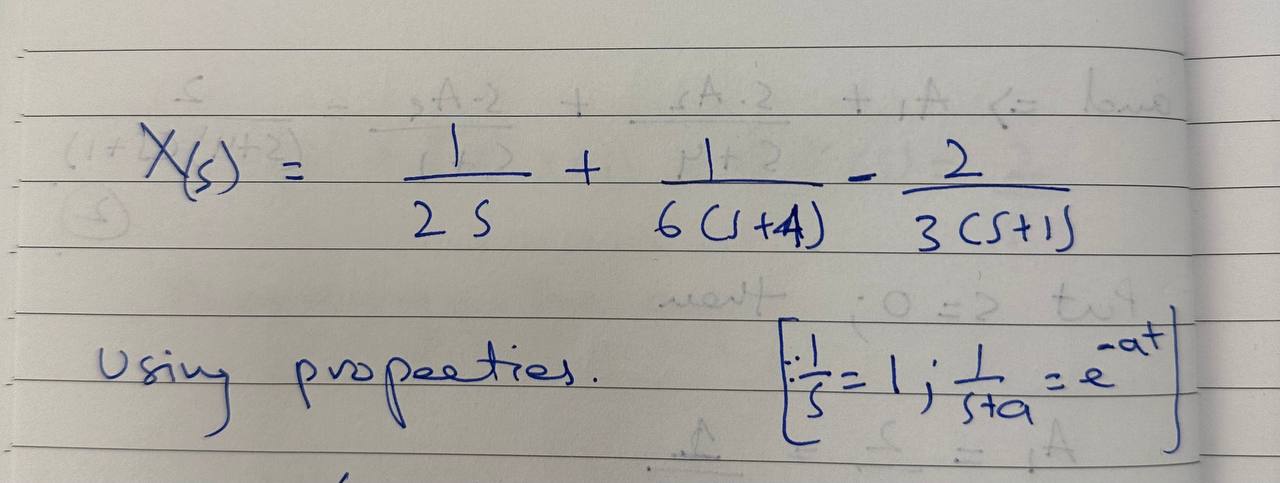 X(s) = 1/(2 S) + 1/(6 (S+4)) - 2/(3 (S+1))
Using propeeties. [∵ 1/S = 1 ; 1/(S+a) = e^(-at)]